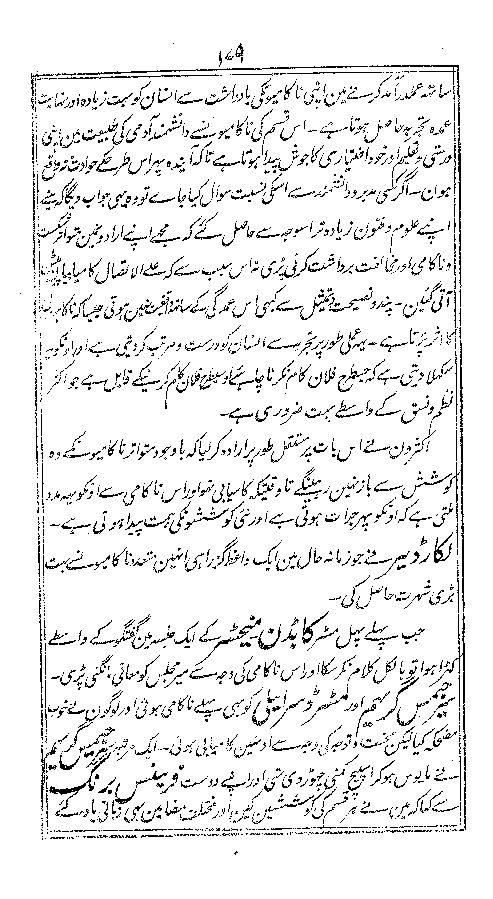 ۱۷۹
ساتھہ عملدرآمد کرنے مین اپنی ناکامیونکی یادداشت سے انسان کو بہت زیادہ اور نہایت
عمدہ تجربہ حاصل ہوتا ہے ۔ اس قسم کی ناکامیونسے دانشمند آدمی کی طبیعت مین اپنی
درستی و تعلیم اور خود اختیاری کا جوش پیدا ہوتا ہے تاکہ آیندہ پہر اس طرحکے حوادث نہ واقع
ہون ۔ اگر کسی مدبر و دانشمند سے اسکی نسبت سوال کیا جاے تو وہ یہی جواب دیگا کہ مینے
اپنے علوم و فنون زیادہ تر اسوجہ سے حاصل کئے کہ مجھے اپنے ارادونمین متواتر شکست
و ناکامی اور مخالفت برداشت کرنی پڑی نہ اس سبب سے کہ علے الاتصال کامیابیان پیش
آتی گئین ۔ پند و نصیحت و تمثیل سے کبہی اس عمدگی کے ساتھہ تربیت نہین ہوتی جیسا کہ ناکامیونکا
کا اثر پڑتا ہے ۔ یہ عملی طور پر تجربہ سے انسان کو درست و مرتب کر دیتی ہے اور اونکو یہہ
سکہلا دیتی ہے کہ جسطرح فلان کام نکرنا چاہئے اوسیطرح فلان کام کرنیکے قابل ہے جو اکثر
نظم و نسق کے واسطے بہت ضروری ہے ۔
اکثرون نے اس بات پر مستقل طور پر ارادہ کر لیا کہ باوجود متواتر ناکامیونکے وہ
کوشش سے باز نہین رہینگے تا وقتیکہ کامیابی نہو اور اس ناکامی سے اونکو یہہ مدد
ملتی ہے کہ اونکو پہر جرات ہوتی ہے اور نئی کوششونکی ہمت پیدا ہوتی ہے ۔
لکارڈیر نے جو زمانہ حال مین ایک واعظ گزرا ہی انہین متعدد ناکامیونسے بہت
بڑی شہرت حاصل کی ۔
جب پہلے پہل مسٹر کابڈن منیچسٹر کے ایک جلسہ مین گفتگو کے واسطے
کہڑا ہوا تو بالکل کلام نکر سکا اور اس ناکامی کی وجہ سے میر مجلس کو معافی مانگنی پڑی ۔
سر جیمس گریہم اور مسٹر ڈسرایلی کو بہی پہلے ناکامی ہوئی اور لوگون نے خوب
مضحکہ کیا لیکن محنت و توجہ کی وجہ سے اونہین کامیابی ہوئی ۔ ایک مرتبہ سر جیمس گریہم
نے مایوس ہو کر اسپیچ کہنی چہوڑ دی تہی اور اپنے دوست فرینسس برنگ
سے کہا کہ مین نے ہر قسم کی کوششین کین اور مختلف مضامین بہی زبانی یاد کئے